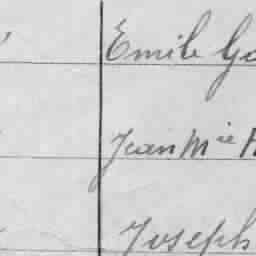 Emile Go
Jean Mie H
Joseph